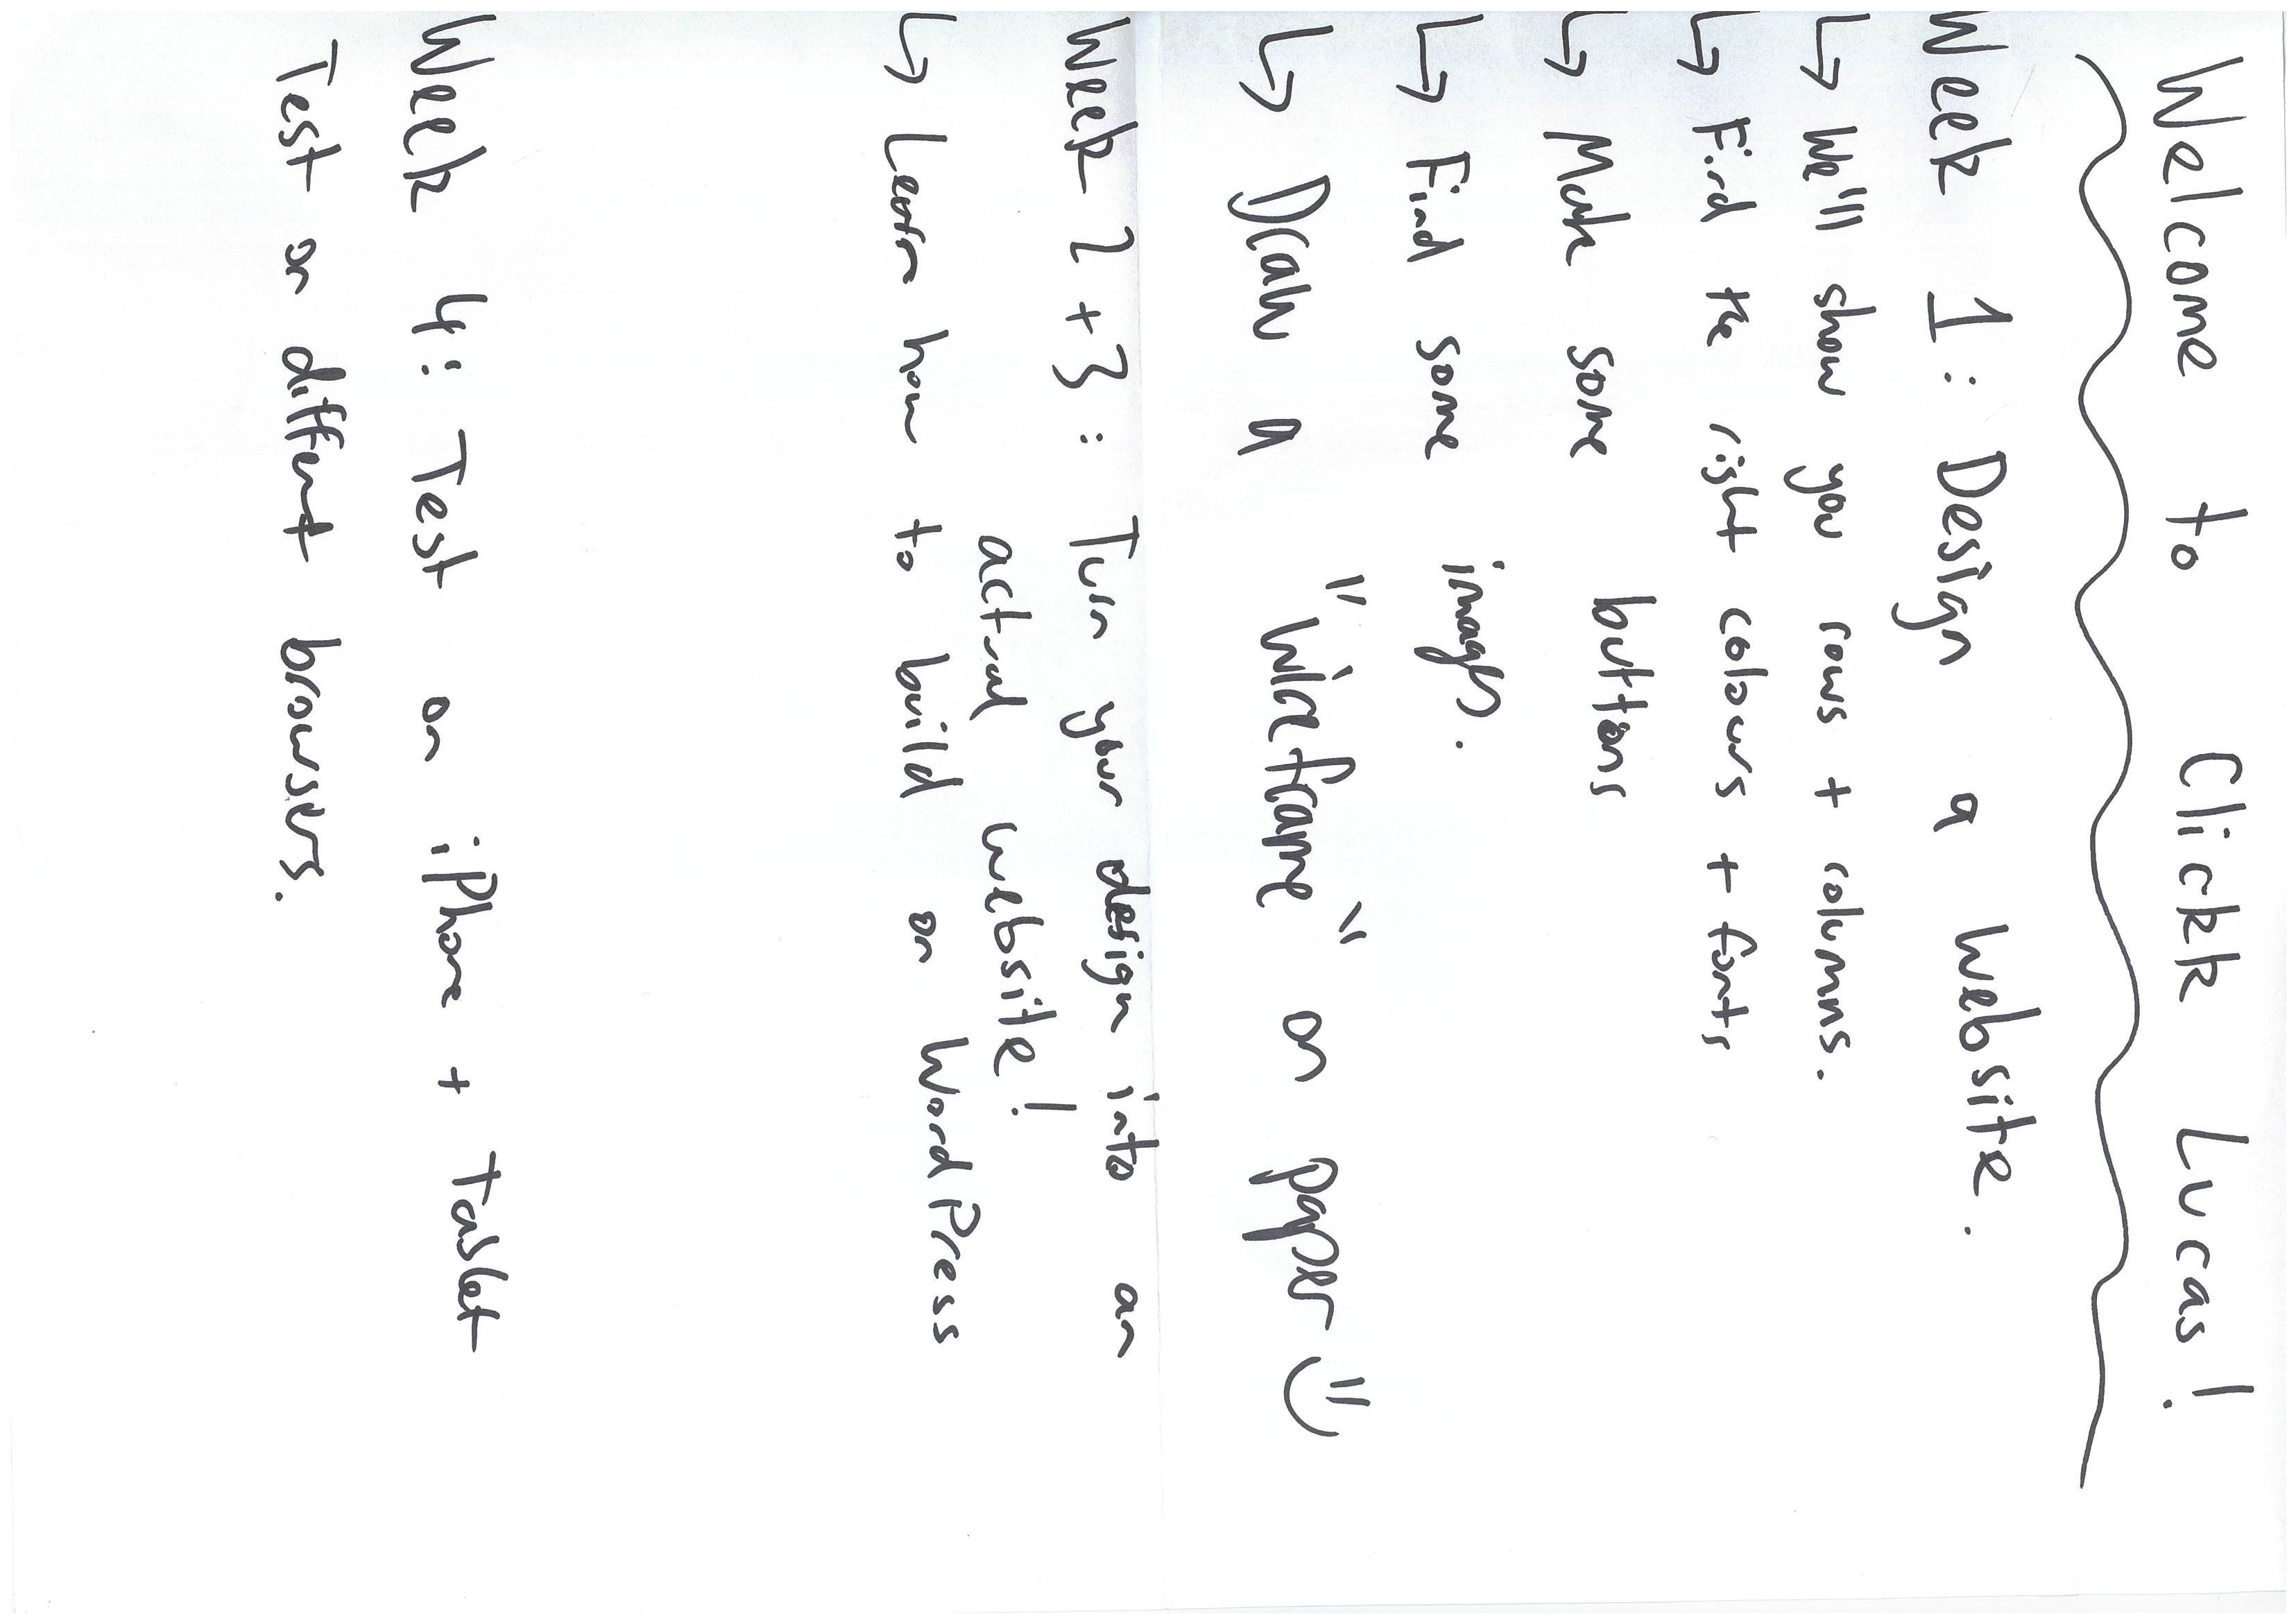 Welcome to Clickk Lucas!
Week 1: Design a website.
↳ We'll show you rows + columns.
↳ Find the right colours + fonts
↳ Make some buttons
↳ Find some images.
↳ Draw a "wireframe" on paper
Week 2 + 3: Turn your design into an
actual website!
↳ Learn how to build on WordPress
Week 4: Test on iPhone + Tablet
Test on different browsers.